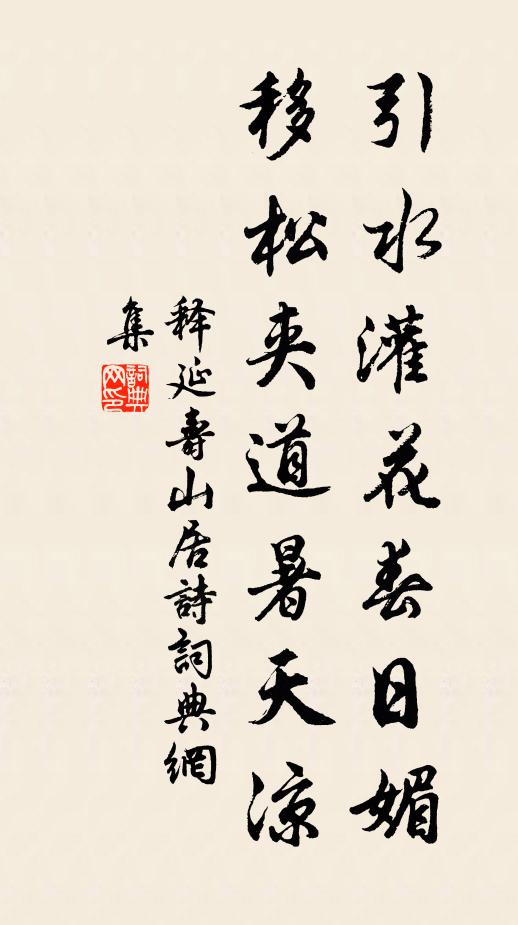 引水灌花春日媚
移松夾道暑天涼
释延壽山居詩詞典網
集
詞典網印